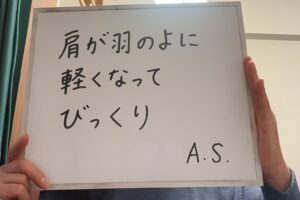 肩が羽のよに
軽くなって
びっくり
A.S.